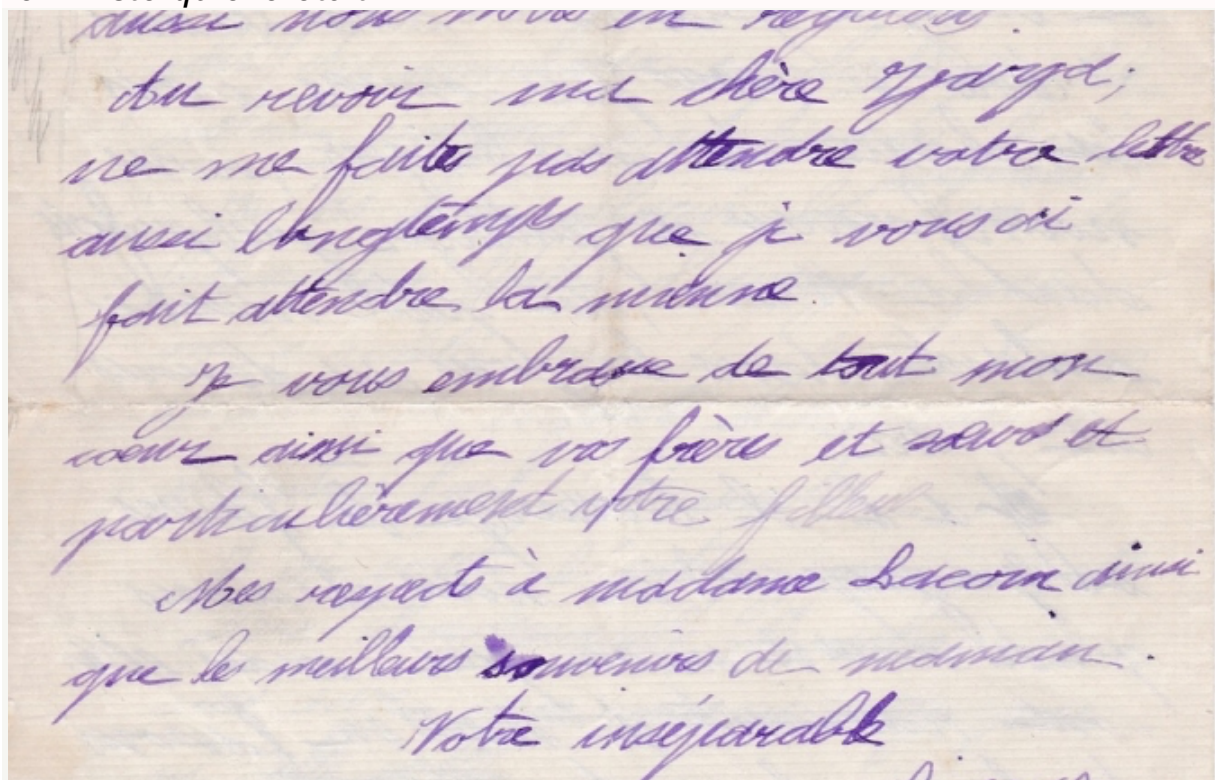 aussi nous nous en
Au revoir ma chère Zaza;
ne me faites pas attendre votre lettre
aussi longtemps que je vous ai
fait attendre la mienne.
Je vous embrasse de tout mon
cœur ainsi que vos frères et sœurs et
particulièrement votre filleul
Mes respects à madame Lacoin ainsi
que les meilleurs souvenirs de maman.
Votre inséparable